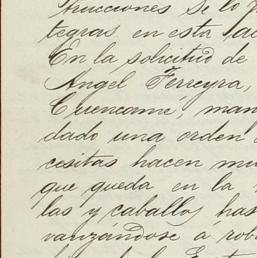 trucciones se lo p
tegras en esta ac
En la solicitud de
Angel Ferreyra,
Cuencamé, man
dado una orden
cesitas hacen mu
que queda en la
las y caballos, has
vanzándose á rob